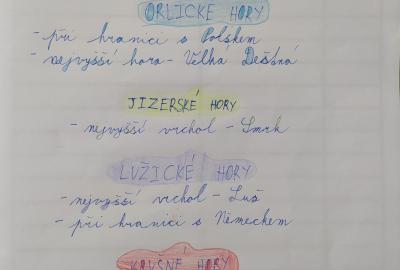 ORLICKÉ HORY
- při hranici s Polskem
- nejvyšší hora - Velká Deštná
JIZERSKÉ HORY
- nejvyšší vrchol - Smrk
LUŽICKÉ HORY
- nejvyšší vrchol - Luž
- při hranici s Německem
KRUŠNÉ HORY